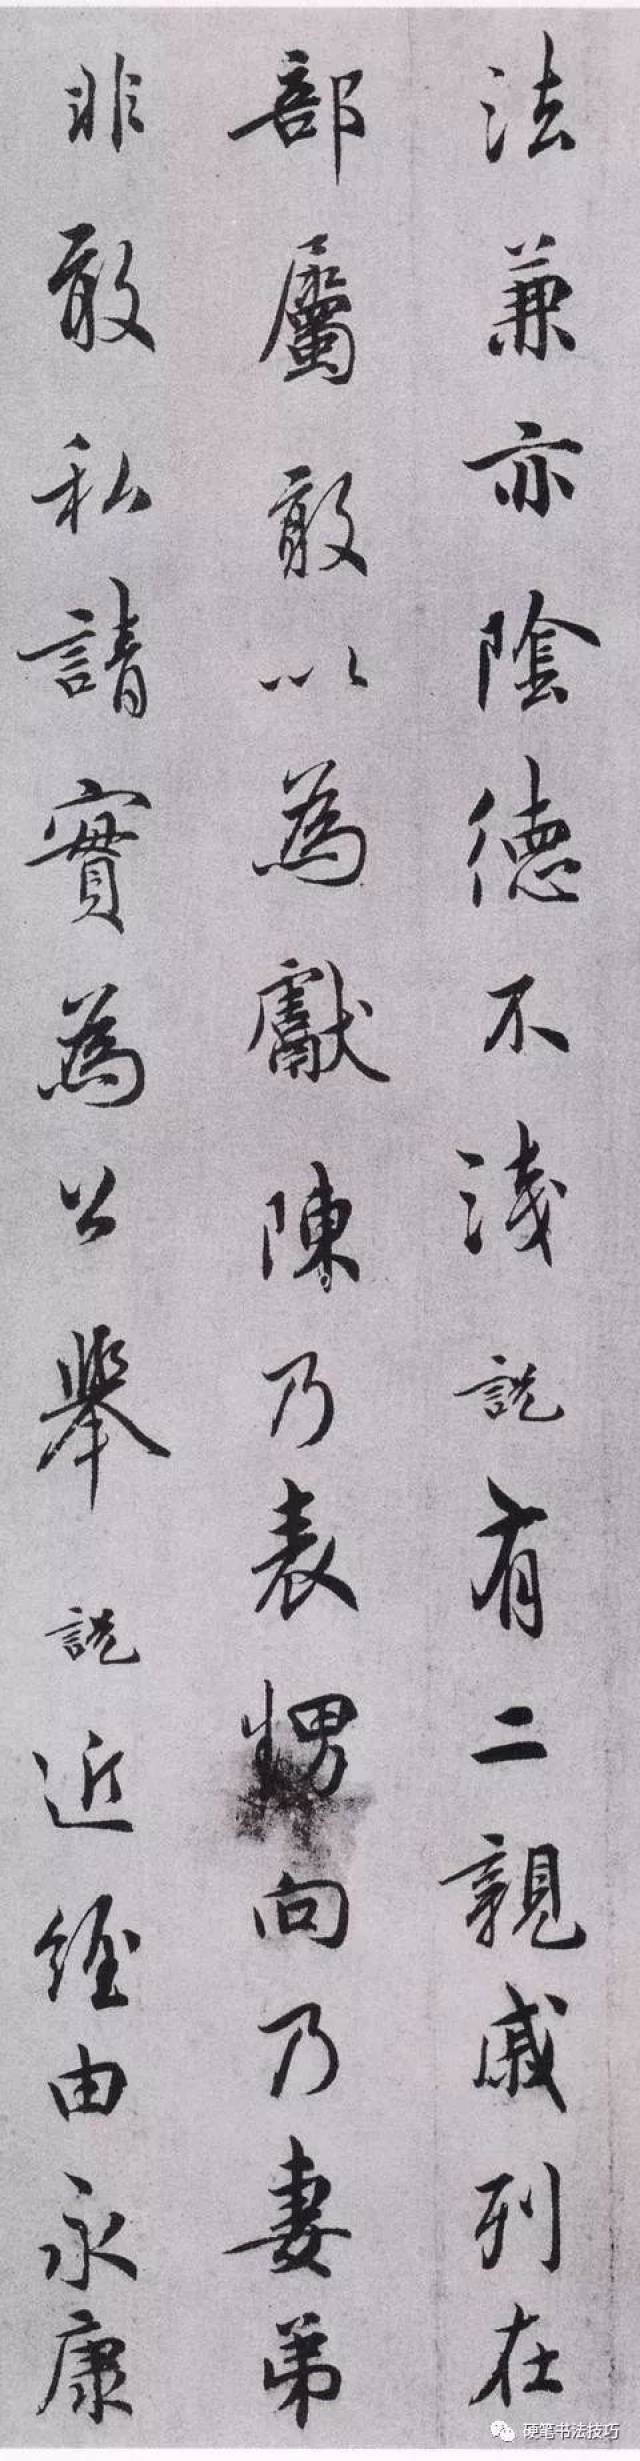 法兼亦陰德不淺説有二親戚列在
部屬敢以為獻陳乃表甥向乃妻弟
非敢私請實為公舉説近經由永康
硬笔书法技巧